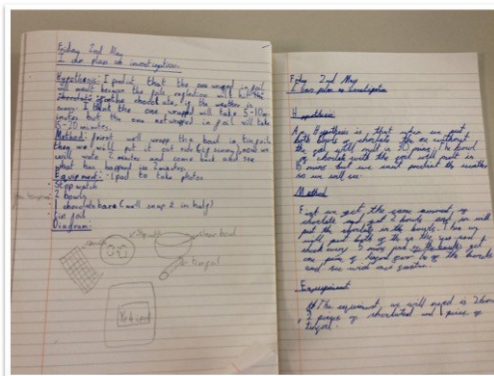 Friday 2nd May
I can plan an investigation
Hypothesis: I predict that the one wrapped in foil
will melt because the foil reflection will
chocolate. the chocolate. if the weather is
sunny. I think the one wrapped will take 5-10
minutes but the one not wrapped in foil will take
15-20 minutes.
Method: first we'll wrap the bowl in tin foil
then we will put it out side (if sunny) and we
will wait 2 minutes and come back and see
what has happend in 2 minutes.
Equipment: ipad to take photos
Stop watch
2 bowls
1 chocolate bar (we'll snap 2 in half)
tin foil
Diagram:
bowl
tin foil
Friday 2nd May
I can plan an investigation
Hypothesis
Hypothesis is that when we put
both bowls of chocolate the one without
the foil will melt in 30 mins the bowl
of chocolate with the foil will melt in
5 mins but we can't predict the weather
so we will see.
Method
First we get the same amount of
chocolate and get 2 bowls and we will
put the chocolate in the bowls. Then we
will put both of them in the sun and
check every 5 mins
one piece of tinfoil over one of the bowls
and see which one is faster.
Equipment
The equipment we will need is 2 bowls
2 pieces of chocolate and 1 piece of
tinfoil.